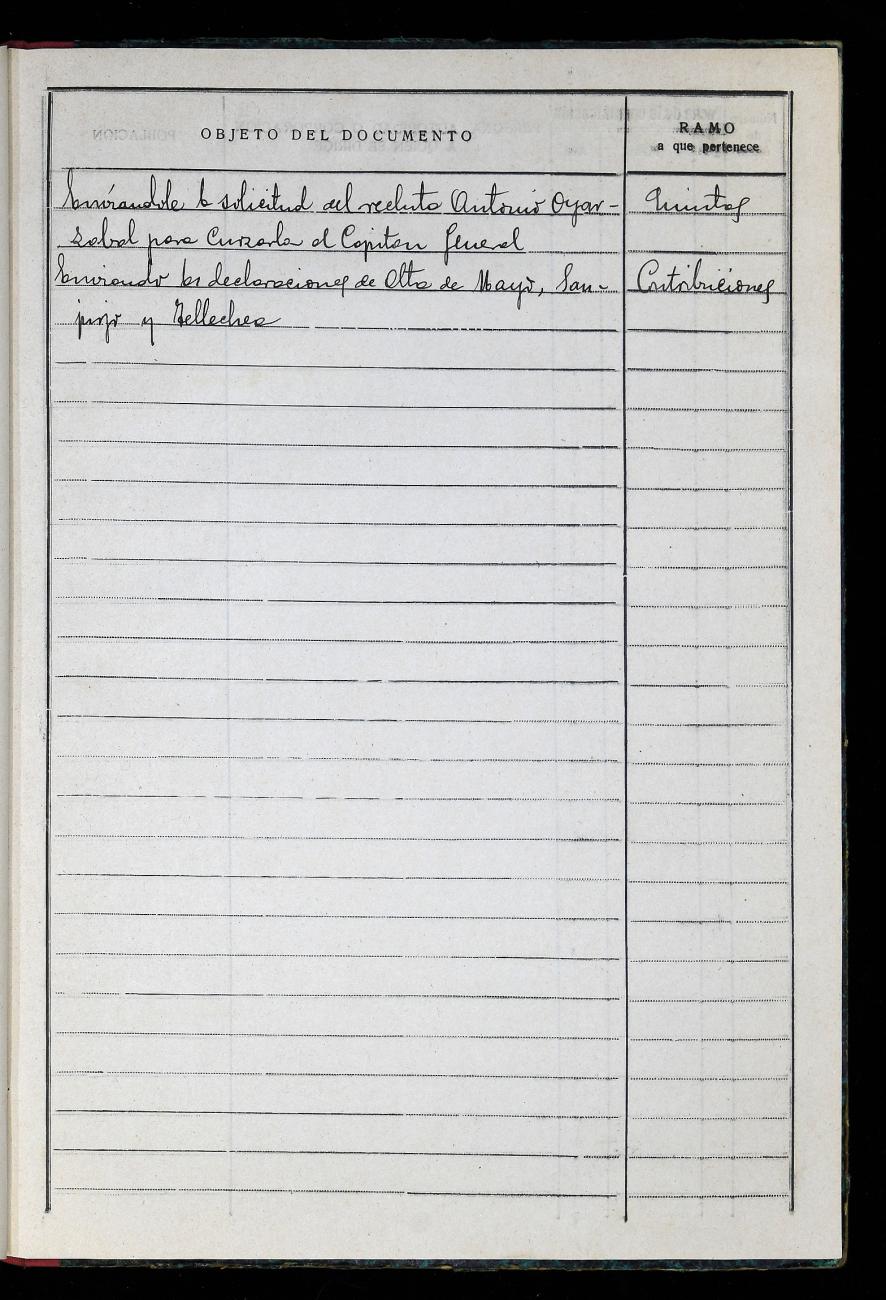 OBJETO DEL DOCUMENTO
RAMO
a que pertenece
Enviándole la solicitud del recluta Antonio Oyar- Quintas
zabal para Cursarla al Capitan General
Enviando las declaraciones de Alta de Mayo, San- Contribuciones
y Tellechea